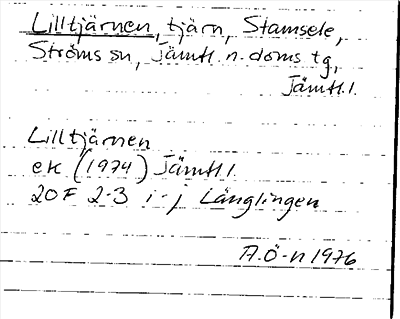 Lilltjärnen, tjärn, Stamsele,
Ströms sn, Jämtl. n. doms tg,
Jämtl. l.
Lilltjärnen
ek (1974) Jämtl. l.
20F 2-3 i-j Länglingen
A.Ö-n 1976